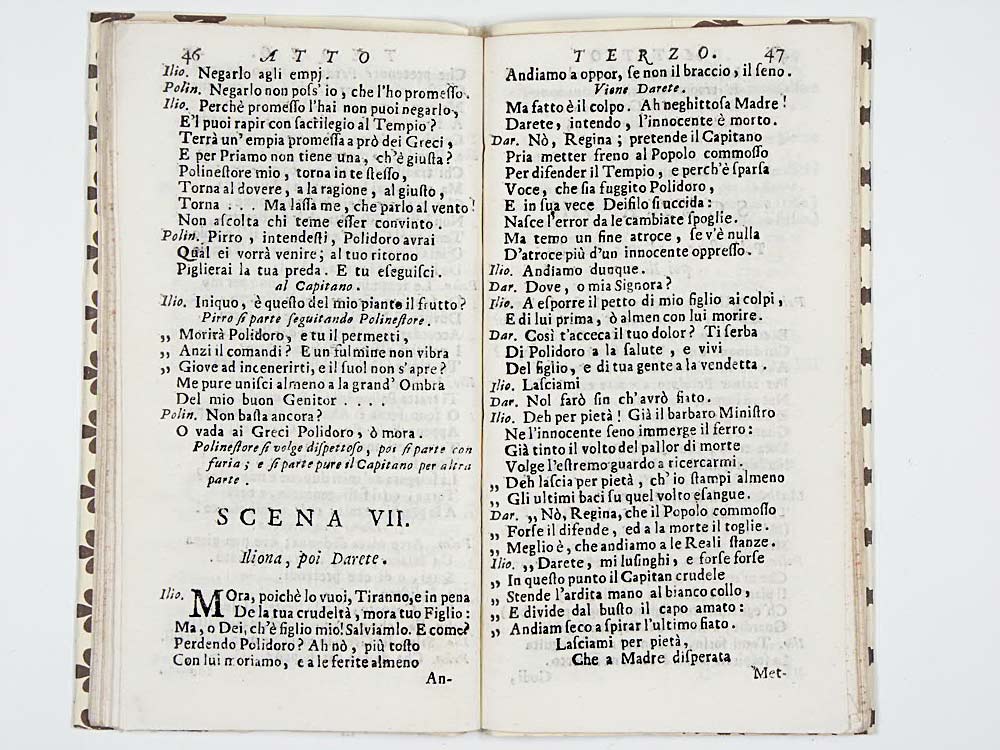 46 ATTO
Ilio. Negarlo agli empj.
Polin. Negarlo non poſs' io, che l'ho promeſſo.
Ilio. Perchè promeſſo l'hai non puoi negarlo,
E'l puoi rapir con ſacrilegio al Tempio?
Terrà un' empia promeſſa a prò dei Greci,
E per Priamo non tiene una, ch'è giuſta?
Polineſtore mio, torna in te ſteſſo,
Torna al dovere, a la ragione, al giuſto,
Torna . . . Ma laſſa me, che parlo al vento!
Non aſcolta chi teme eſſer convinto.
Polin. Pirro, intendeſti, Polidoro avrai
Quàl ei vorrà venire; al tuo ritorno
Piglierai la tua preda. E tu eſeguiſci.
al Capitano.
Ilio. Iniquo, è queſto del mio pianto il frutto?
Pirro ſi parte ſeguitando Polineſtore.
„ Morirà Polidoro, e tu il permetti,
„ Anzi il comandi? E un fulmine non vibra
„ Giove ad incenerirti, e il ſuol non s'apre?
Me pure uniſci almeno a la grand' Ombra
Del mio buon Genitor . . . .
Polin. Non baſta ancora?
O vada ai Greci Polidoro, ò mora.
Polineſtore ſi volge diſpettoſo, poi ſi parte con
furia; e ſi parte pure il Capitano per altra
parte.
SCENA VII.
Iliona, poi Darete.
Ilio. MOra, poichè lo vuoi, Tiranno, e in pena
De la tua crudeltà, mora tuo Figlio:
Ma, o Dei, ch'è figlio mio! Salviamlo. E come?
Perdendo Polidoro? Ah nò, più toſto
Con lui moriamo, e a le ferite almeno
An-
TERZO. 47
Andiamo a oppor, ſe non il braccio, il ſeno.
Viene Darete.
Ma fatto è il colpo. Ah neghittoſa Madre!
Darete, intendo, l'innocente è morto.
Dar. Nò, Regina; pretende il Capitano
Pria metter freno al Popolo commoſſo
Per difender il Tempio, e perch'è ſparſa
Voce, che ſia fuggito Polidoro,
E in ſua vece Deifilo ſi uccida:
Naſce l'error da le cambiate ſpoglie.
Ma temo un fine atroce, ſe v'è nulla
D'atroce più d'un innocente oppreſſo.
Ilio. Andiamo dunque.
Dar. Dove, o mia Signora?
Ilio. A eſporre il petto di mio figlio ai colpi,
E di lui prima, ò almen con lui morire.
Dar. Così t'acceca il tuo dolor? Ti ſerba
Di Polidoro a la ſalute, e vivi
Del figlio, e di tua gente a la vendetta.
Ilio. Laſciami
Dar. Nol farò ſin ch'avrò fiato.
Ilio. Deh per pietà! Già il barbaro Miniſtro
Ne l'innocente ſeno immerge il ferro:
Già tinto il volto del pallor di morte
Volge l'eſtremo guardo a ricercarmi.
„ Deh laſcia per pietà, ch' io ſtampi almeno
„ Gli ultimi baci ſu quel volto eſangue.
Dar. „ Nò, Regina, che il Popolo commoſſo
„ Forſe il difende, ed a la morte il toglie.
„ Meglio è, che andiamo a le Reali ſtanze.
Ilio. „ Darete, mi luſinghi, e forſe forſe
„ In queſto punto il Capitan crudele
„ Stende l'ardita mano al bianco collo,
„ E divide dal buſto il capo amato:
„ Andiam ſeco a ſpirar l'ultimo fiato.
Laſciami per pietà,
Che a Madre diſperata
Met-